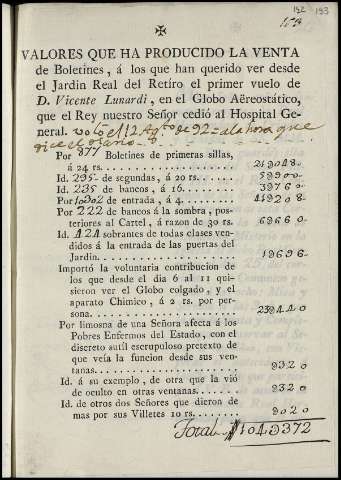 192 193
153
VALORES QUE HA PRODUCIDO LA VENTA
de Boletines, á los que han querido ver desde
el Jardin Real del Retiro el primer vuelo de
D. Vicente Lunardi, en el Globo Aëreostático,
que el Rey nuestro Señor cedió al Hospital Ge-
neral. voló el 12 Agto de 92 = a la hora que
dice el diario =
Por 877 Boletines de primeras sillas,
á 24 rs. 21048
Id. 295 de segundas, á 20 rs. 5900
Id. 235 de bancos, á 16. 3760
Por 10302 de entrada, á 4. 41208
Por 222 de bancos á la sombra, pos-
teriores al Cartel, á razon de 30 rs. 6660
Id. 424 sobrantes de todas clases ven-
didos á la entrada de las puertas del
Jardin. 1696
Importó la voluntaria contribucion de
los que desde el dia 6 al 11 qui-
sieron ver el Globo colgado, y el
aparato Chîmico, á 2 rs. por per-
sona.
Por limosna de una Señora afecta á los
Pobres Enfermos del Estado, con el
discreto sutíl escrupuloso pretexto de
que veía la funcion desde sus ven-
tanas. 320
Id. á su exemplo, de otra que la vió
de oculto en otras ventanas. 320
Id. de otros dos Señores que dieron de
mas por sus Villetes 10 rs. 020
Total